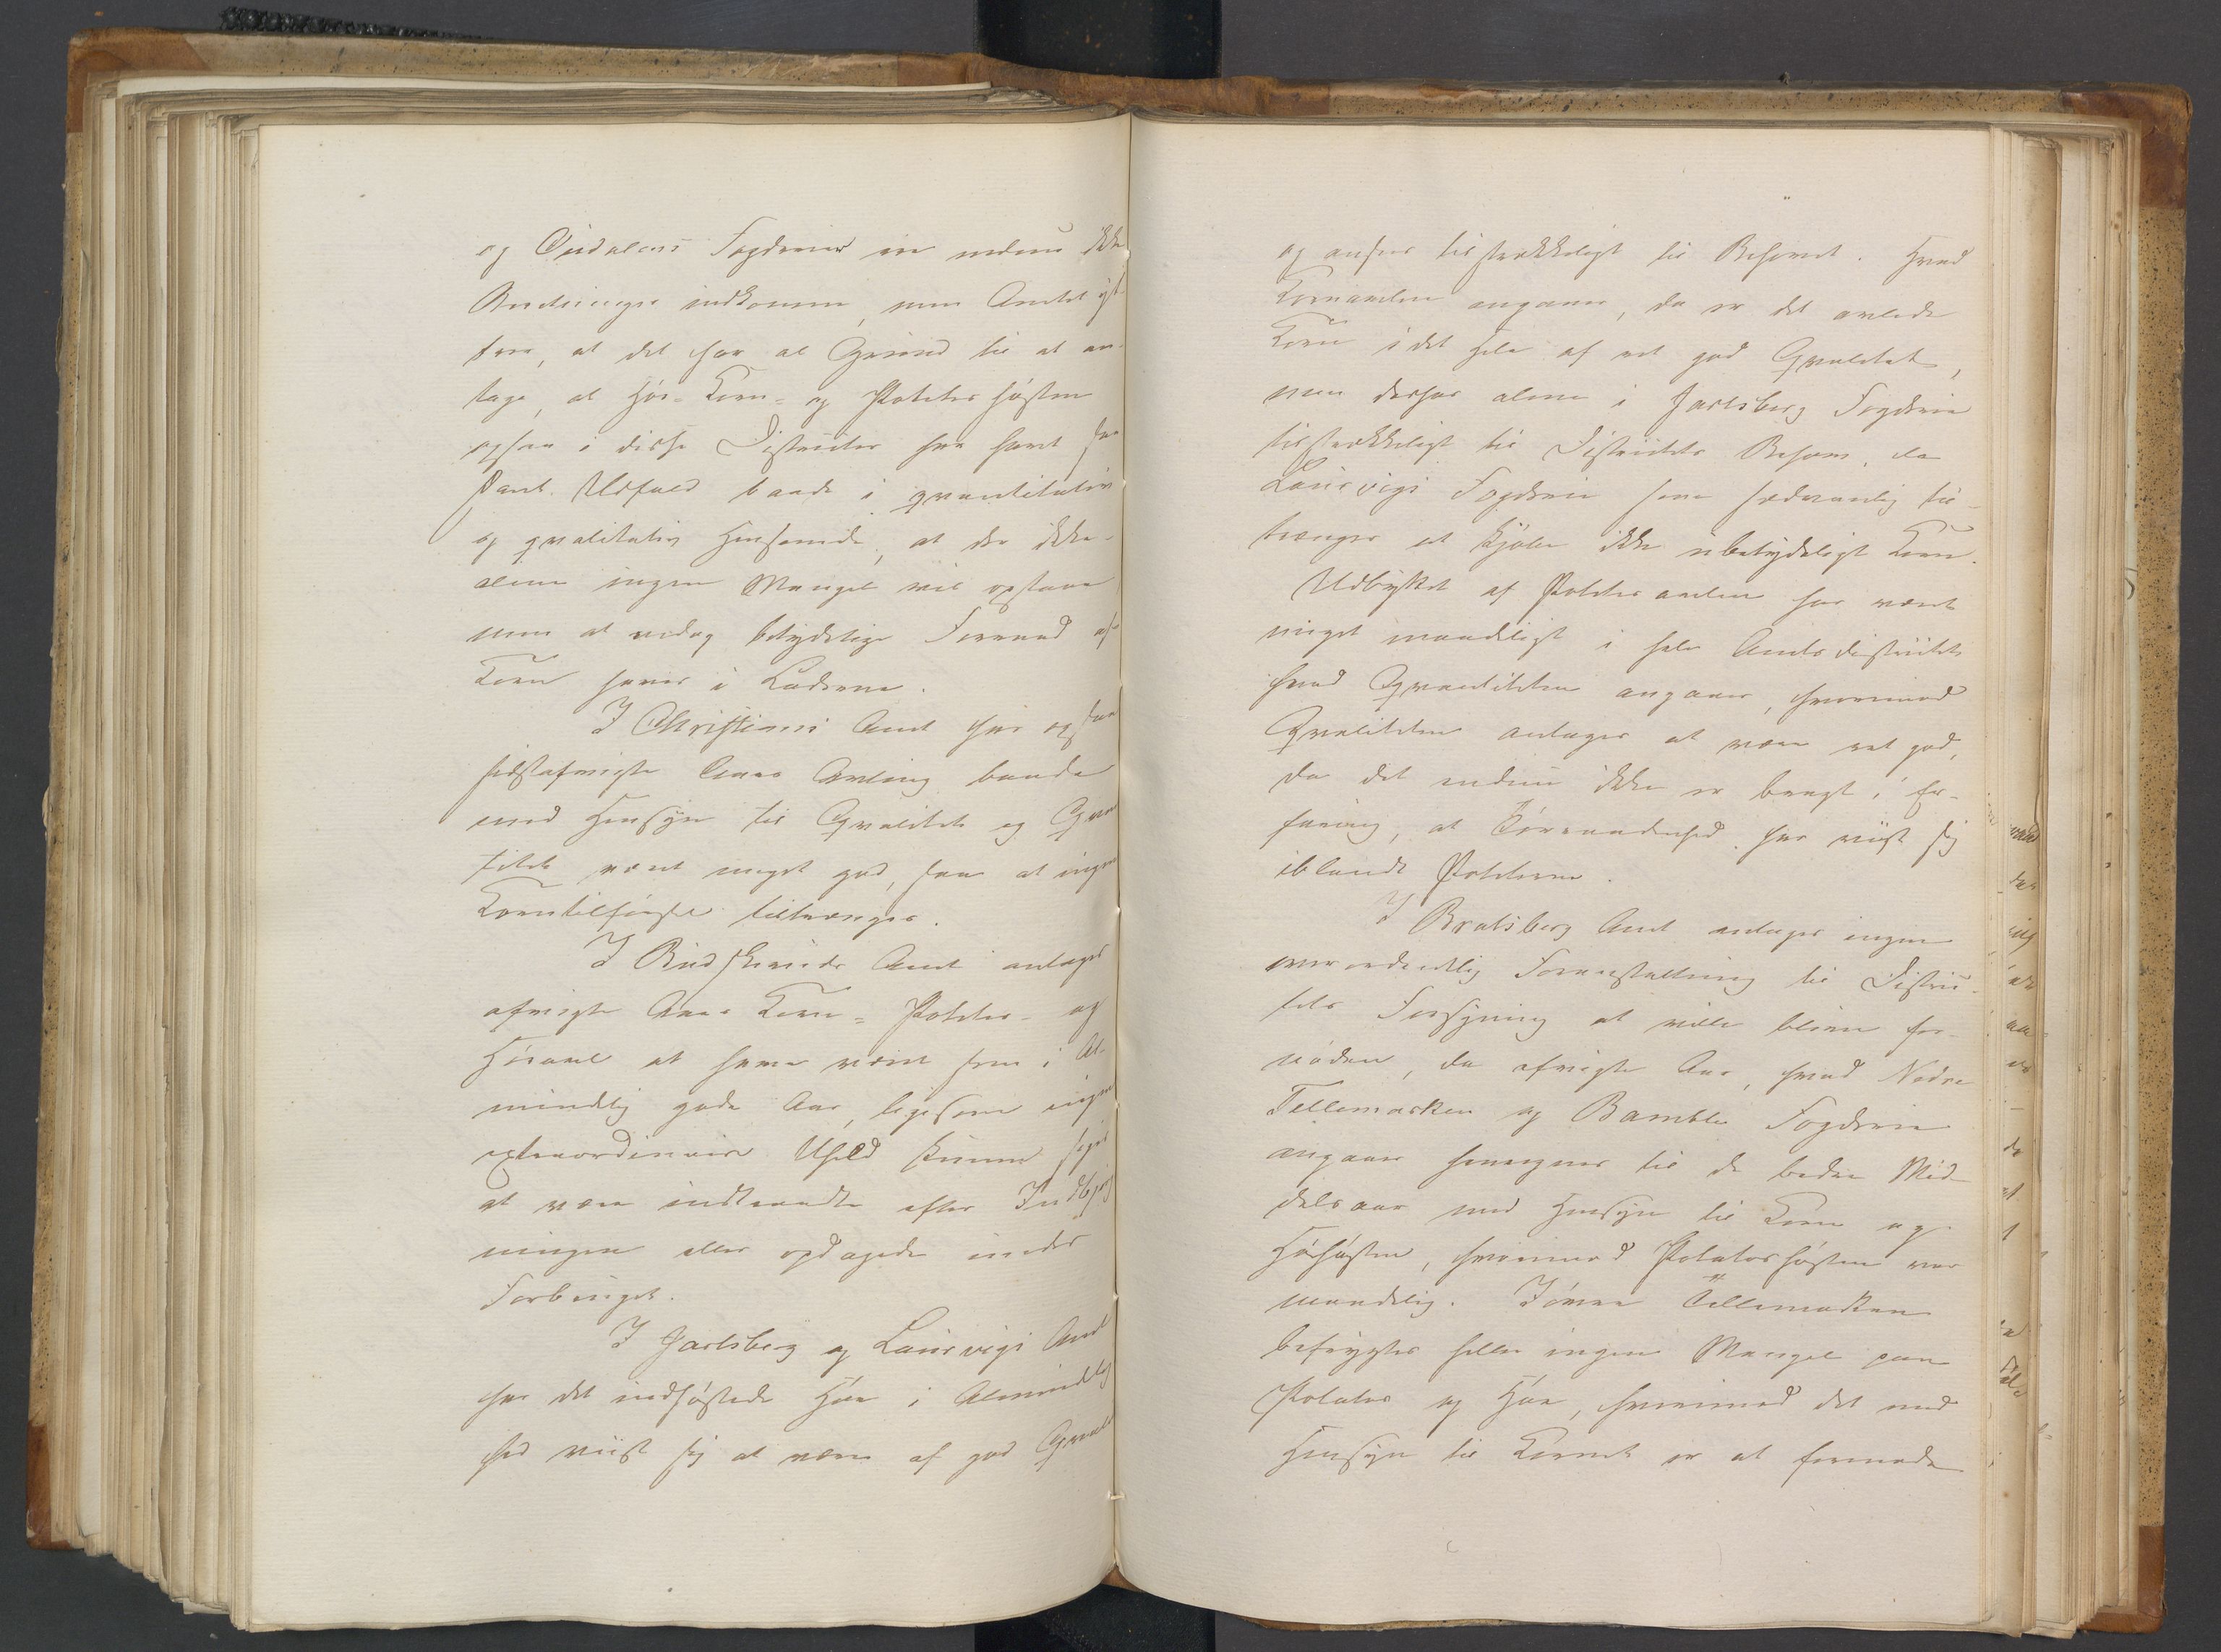 og Ourdalens Fogderier ere endnu ikke
Beretninger indkomne, men Amtet yt-
trer, at det har al Grund til at an-
tage, at Hø- Korn- og Potetes høsten
ogsaa i disse Districter har havt saa-
dant Udfald baade i qvantitativ
og qvalitativ Henseende, at der ikke-
alene ingen Mangel vil opstaae
men at endog betydelige Forraad af
Korn haves i Laderne.
I Christians Amt har ogsaa
sidstafvigte Aars Avling baade
med Hensyn til Qvalitet og Qvan
titet været meget god, saa at ingen
Korntilførsel tiltrænges.
I Budskeruds Amt antages
afvigte Aars Korn- Potetes- og
Høavl at have været som i Al-
mindelig gode Aar, ligesom ingen
extraordinair Uheld kunne siges
at være indtraadte efter Indbjerg
ningen eller opdagede under
Forbruget.
I Jarlsberg og Laurvigs Amt
har det indhøstede Hø i Almindelig
hed viist sig at være af god Qvalitet
og ansees tilstrækkeligt til Behovet. Hvad
Kornavlen angaaer, da er det avlede
Korn i det Hele af ret god Qvalitet,
men derfor alene i Jarlsberg Fogderie
tilstrækkeligt til Districtets Behov, da
Laurvigs Fogderie som sædvanlig til-
trænger at kjøbe ikke ubetydeligt Korn.
Udbyttet af Potetes avlen har været
meget maadeligt i hele Amtsdistrictet
hvad Qvantiteten angaaer, hvorimod
Qvaliteten antages at være ret god,
da det endnu ikke er bragt i Er-
faring, at Törraadenhed har viist sig
iblandt Poteterne.
I Bratsberg Amt antages ingen
overordentlig Foranstaltning til Distric-
tets Forsyning at ville blive for-
nøden, da afvigte Aar, hvad Nedre
Tellemarken og Bamble Fogderie
angaaer henregnes til de bedre Mid
delsaar med Hensyn til Korn og
Höhøsten, hvorimod Potateshøsten var
maadelig. I övre Tellemarken
befrygtes heller ingen Mangel paa
Potates og Høe, hvorimod det med
Hensyn til Kornet er at formode